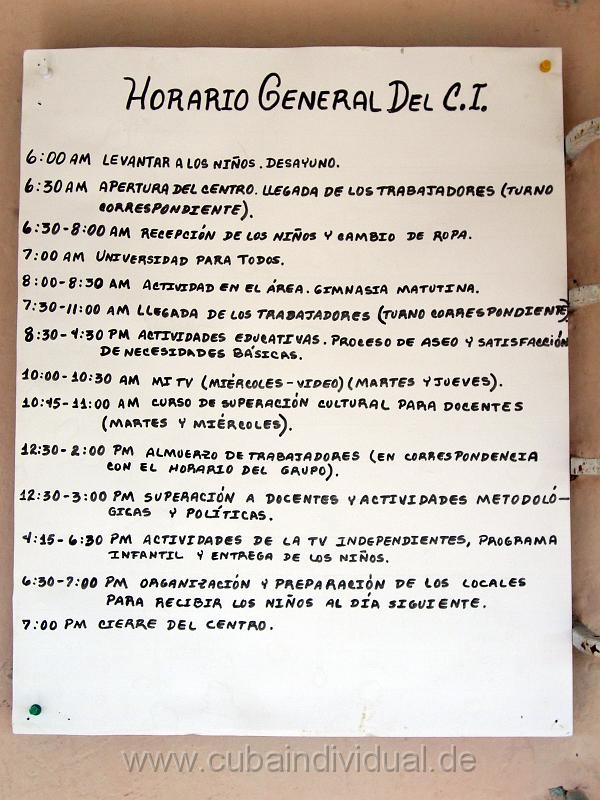 HORARIO GENERAL DEL C.I.
6:00 AM LEVANTAR A LOS NIÑOS. DESAYUNO.
6:30 AM APERTURA DEL CENTRO. LLEGADA DE LOS TRABAJADORES (TURNO
CORRESPONDIENTE).
6:30-8:00 AM RECEPCIÓN DE LOS NIÑOS Y CAMBIO DE ROPA.
7:00 AM UNIVERSIDAD PARA TODOS.
8:00-8:30 AM ACTIVIDAD EN EL ÁREA. GIMNASIA MATUTINA.
7:30-11:00 AM LLEGADA DE LOS TRABAJADORES (TURNO CORRESPONDIENTE)
8:30-4:30 PM ACTIVIDADES EDUCATIVAS. PROCESO DE ASEO Y SATISFACCIÓN
DE NECESIDADES BÁSICAS.
10:00-10:30 AM MI TV (MIÉRCOLES-VIDEO) (MARTES Y JUEVES).
10:45-11:00 AM CURSO DE SUPERACIÓN CULTURAL PARA DOCENTES
(MARTES Y MIÉRCOLES).
12:30-2:00 PM ALMUERZO DE TRABAJADORES (EN CORRESPONDENCIA
CON EL HORARIO DEL GRUPO).
12:30-3:00 PM SUPERACIÓN A DOCENTES Y ACTIVIDADES METODOLÓ-
GICAS Y POLÍTICAS.
4:15-6:30 PM ACTIVIDADES DE LA TV INDEPENDIENTES, PROGRAMA
INFANTIL Y ENTREGA DE LOS NIÑOS.
6:30-7:00 PM ORGANIZACIÓN Y PREPARACIÓN DE LOS LOCALES
PARA RECIBIR LOS NIÑOS AL DÍA SIGUIENTE.
7:00 PM CIERRE DEL CENTRO.
www.cubaindividual.de